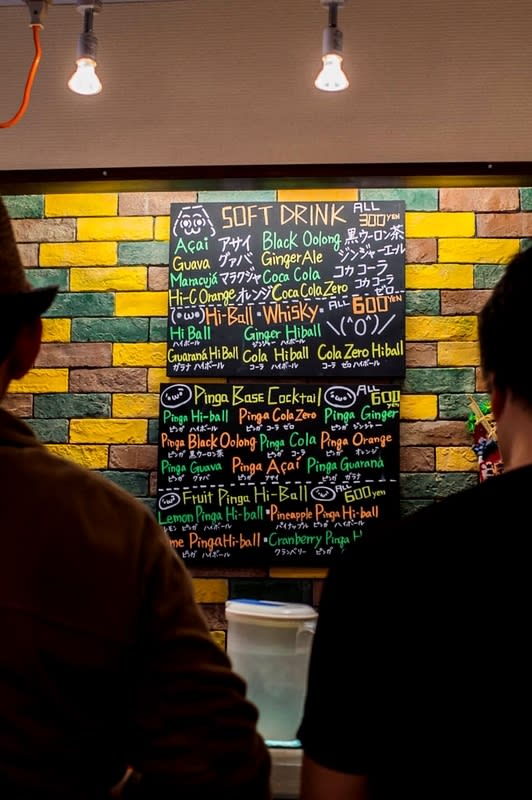 SOFT DRINK ALL 300YEN
Açai アサイ Black Oolong 黒ウーロン茶
Guava グァバ Ginger Ale ジンジャーエール
Maracujá マラクジャ Coca Cola コカ コーラ
Hi-C Orange オレンジ Coca Cola Zero コカ コーラ ゼロ
Hi-Ball・Whisky・ALL 600YEN
Hi Ball Ginger Hiball \(^O^)/
ハイボール ジンジャー ハイボール
Guaraná Hi Ball Cola Hiball Cola Zero Hiball
ガラナ ハイボール コーラ ハイボール コーラ ゼロ ハイボール
Pinga Base Cocktail ALL 600YEN
Pinga Hi-ball Pinga Cola Zero Pinga Ginger
ピンガ ハイボール ピンガ コーラ ゼロ ピンガ ジンジャー
Pinga Black Oolong Pinga Cola Pinga Orange
ピンガ 黒ウーロン茶 ピンガ コーラ ピンガ オレンジ
Pinga Guava Pinga Açai Pinga Guaraná
ピンガ グァバ ピンガ アサイ ピンガ ガラナ
Fruit Pinga Hi-Ball ALL 600yen
Lemon Pinga Hi-ball・Pineapple Pinga Hi-ball
レモン ピンガ ハイボール パイナップル ピンガ ハイボール
me Pinga Hi-ball・Cranberry Pinga H
ピンガ ハイボール クランベリー ピンガ